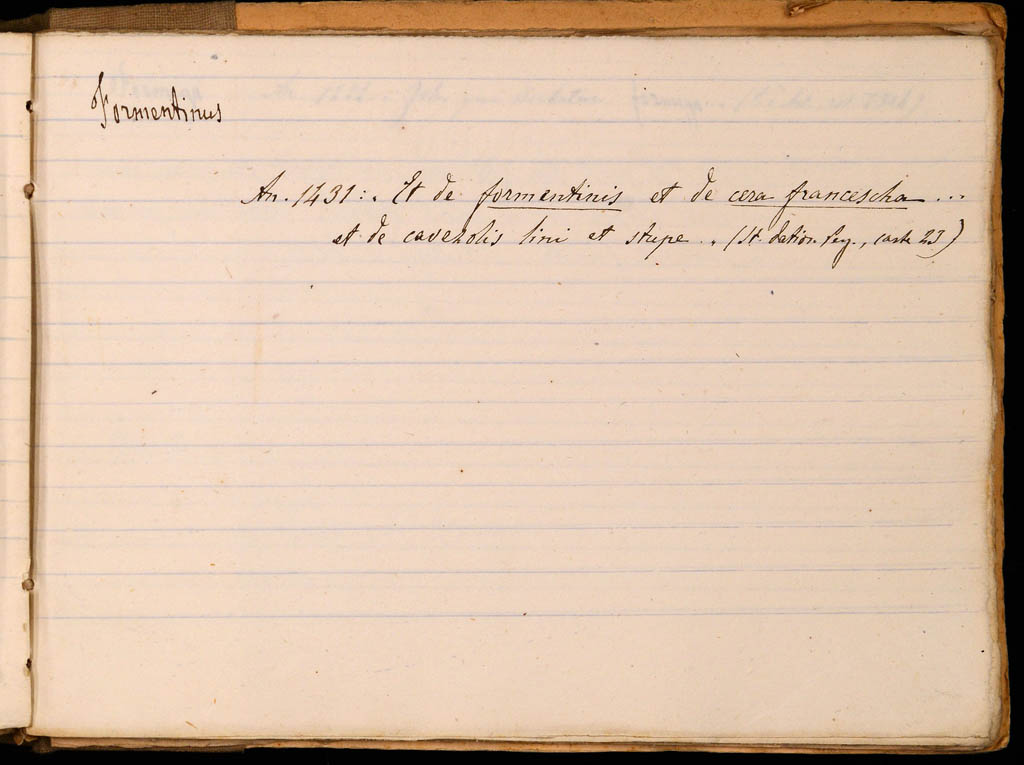 Formentinus
An. 1431: „ Et de formentinis et de cera francescha ...
et de cavezolis lini et stupe „ (St. Dation. Reg., carte 23)